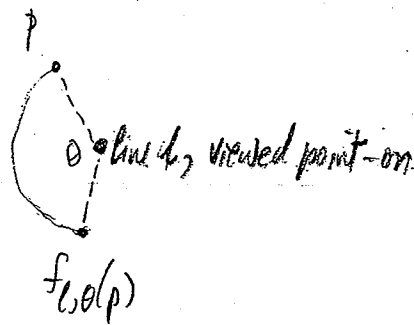 p
θ line ℓ, viewed point-on
f_{ℓ,θ}(p)